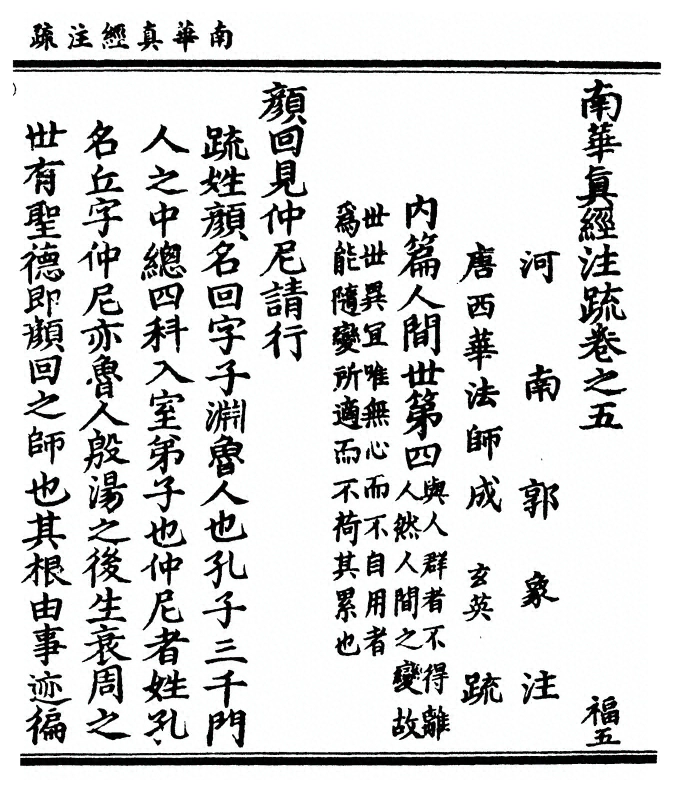 南華真經注疏
南華眞經注疏卷之五
福五
河南郭象注
唐西華法師成玄英疏
内篇人間丗第四
與人群者不得離
人然人間之變故
丗丗異宜唯無心而不自用者
爲能隨變所適而不荷其累也
顏回見仲尼請行
疏姓顏名回字子淵魯人也孔子三千門
人之中總四科入室弟子也仲尼者姓孔
名丘字仲尼亦魯人殷湯之後生衰周之
丗有聖德即顏回之師也其根由事迹徧